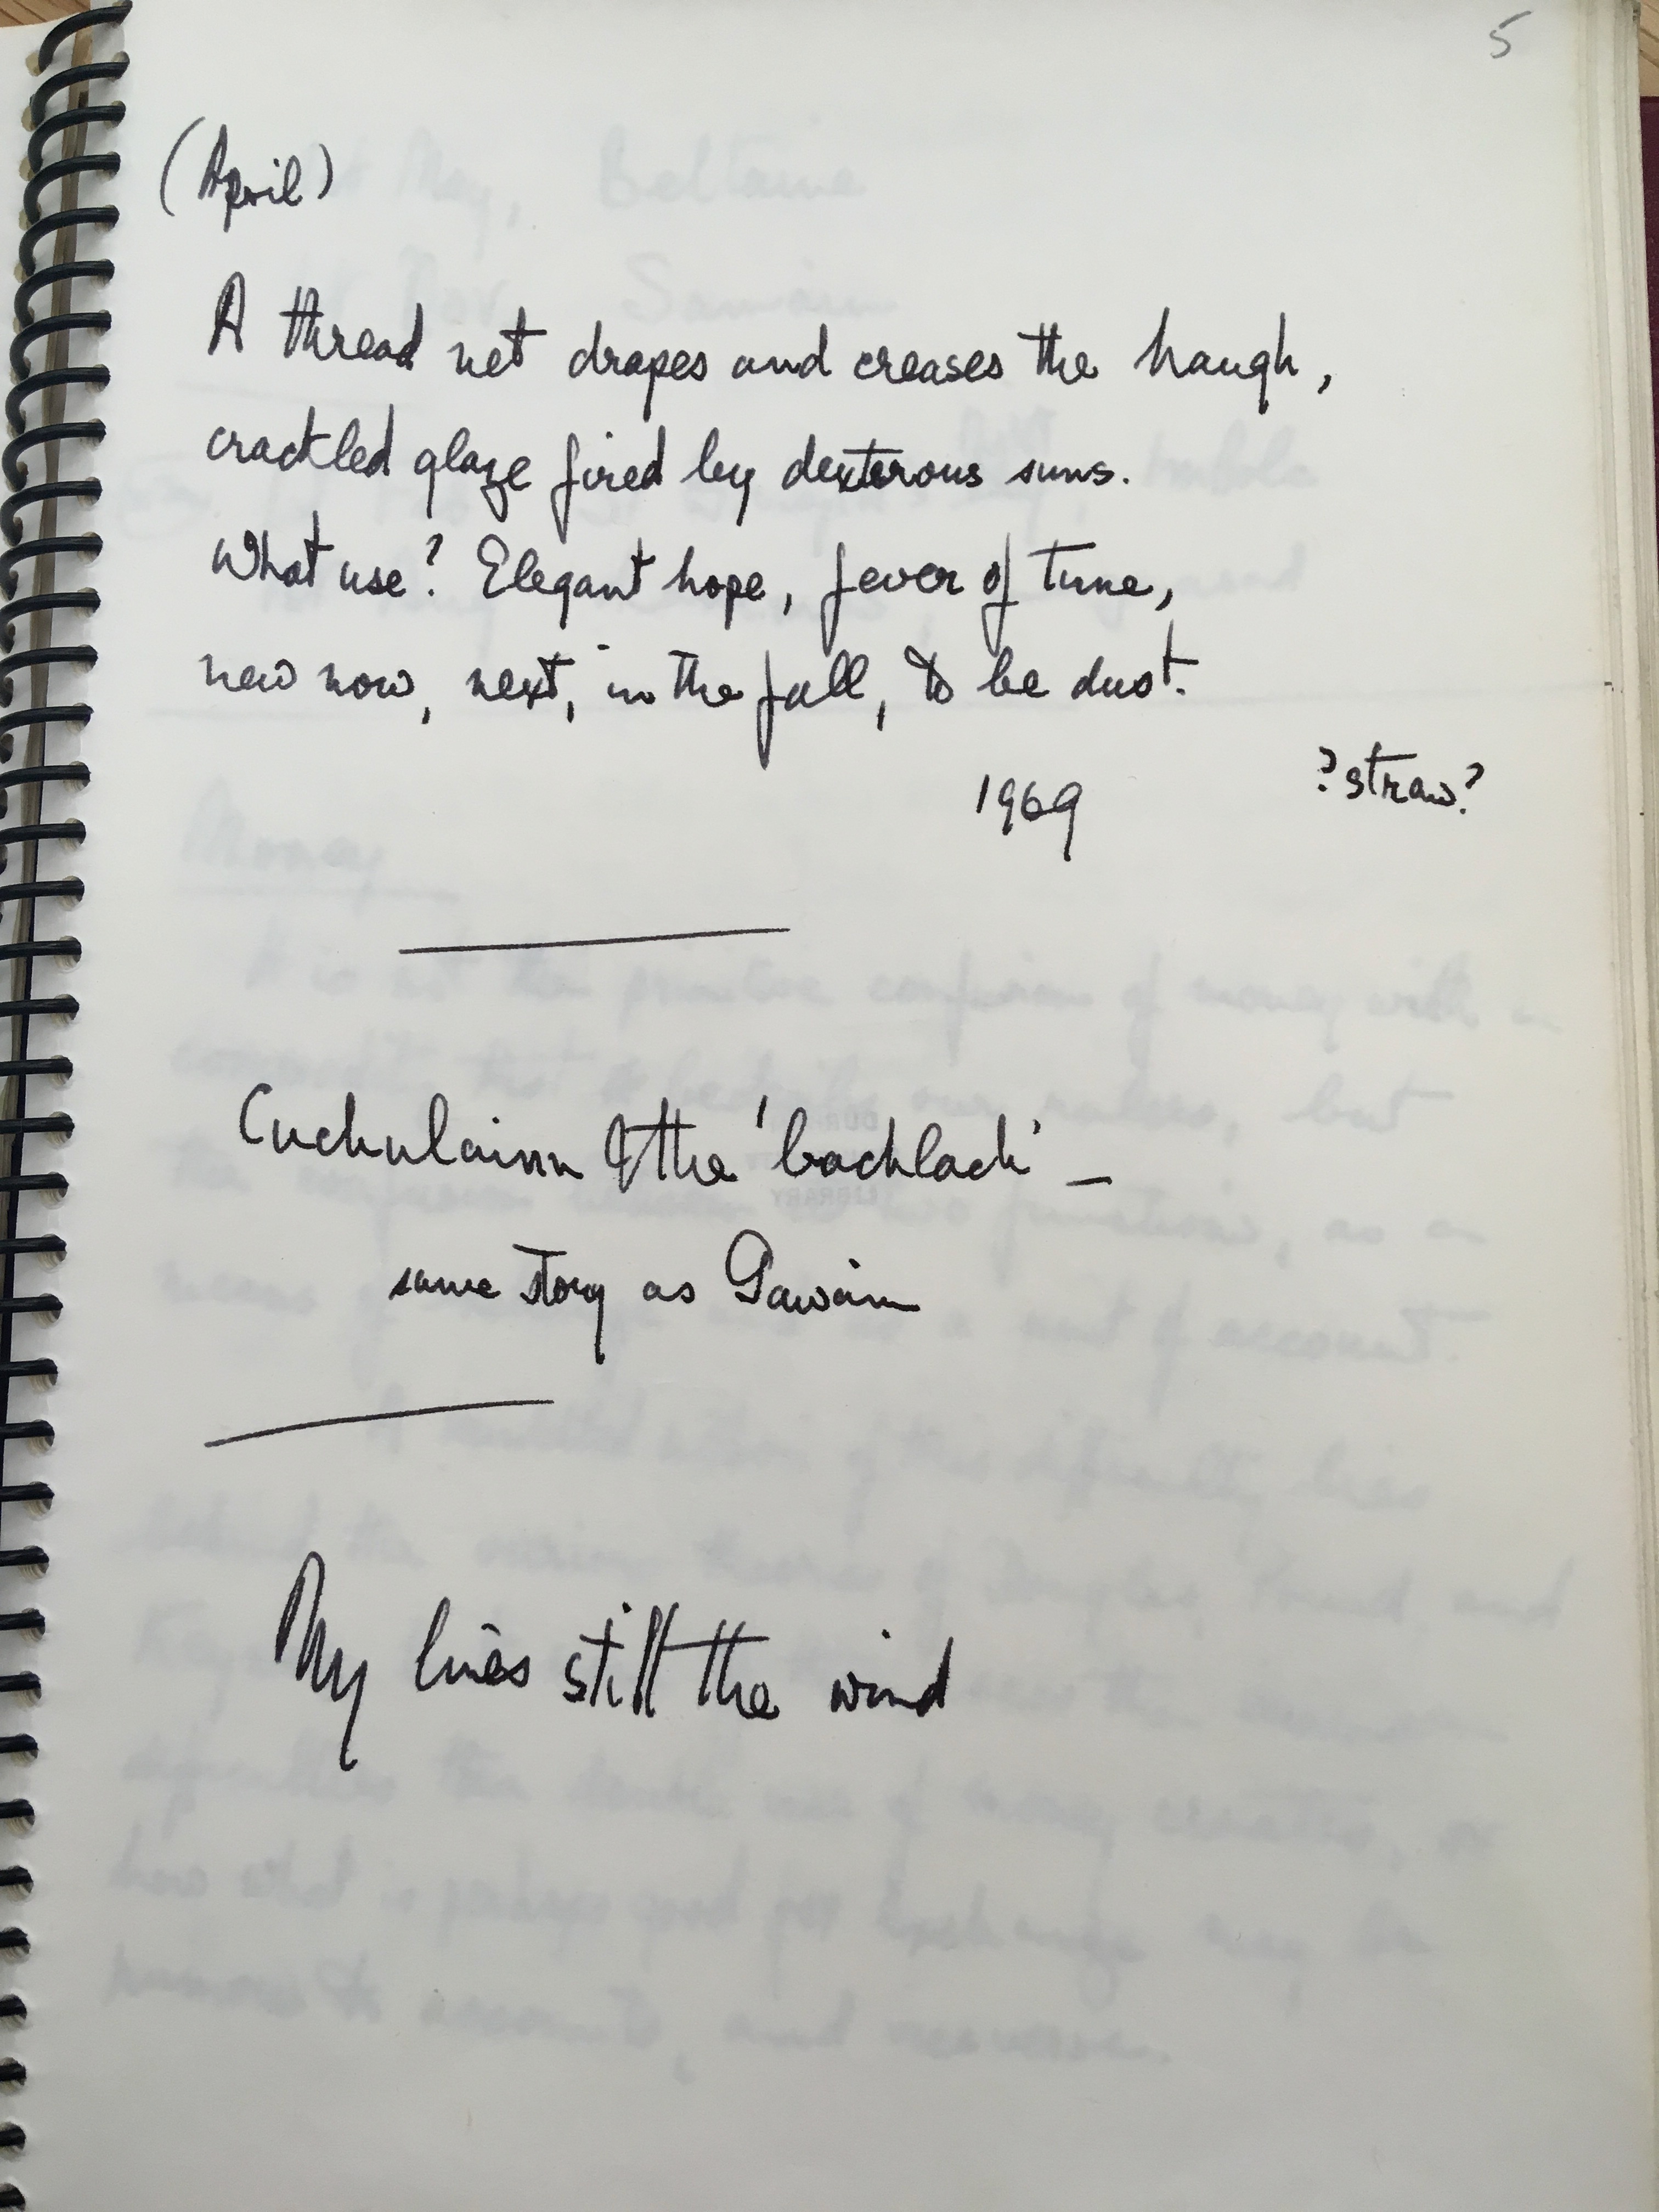 5
(April)
A thread net drapes and creases the haugh,
crackled glaze fired by dexterous suns.
What use? Elegant hope, fever of tune,
new now, next, in the fall, to be dust.
1969 ?straw?
Cuchulainn & the 'bachlach' –
same story as Gawain
My lines still the wind